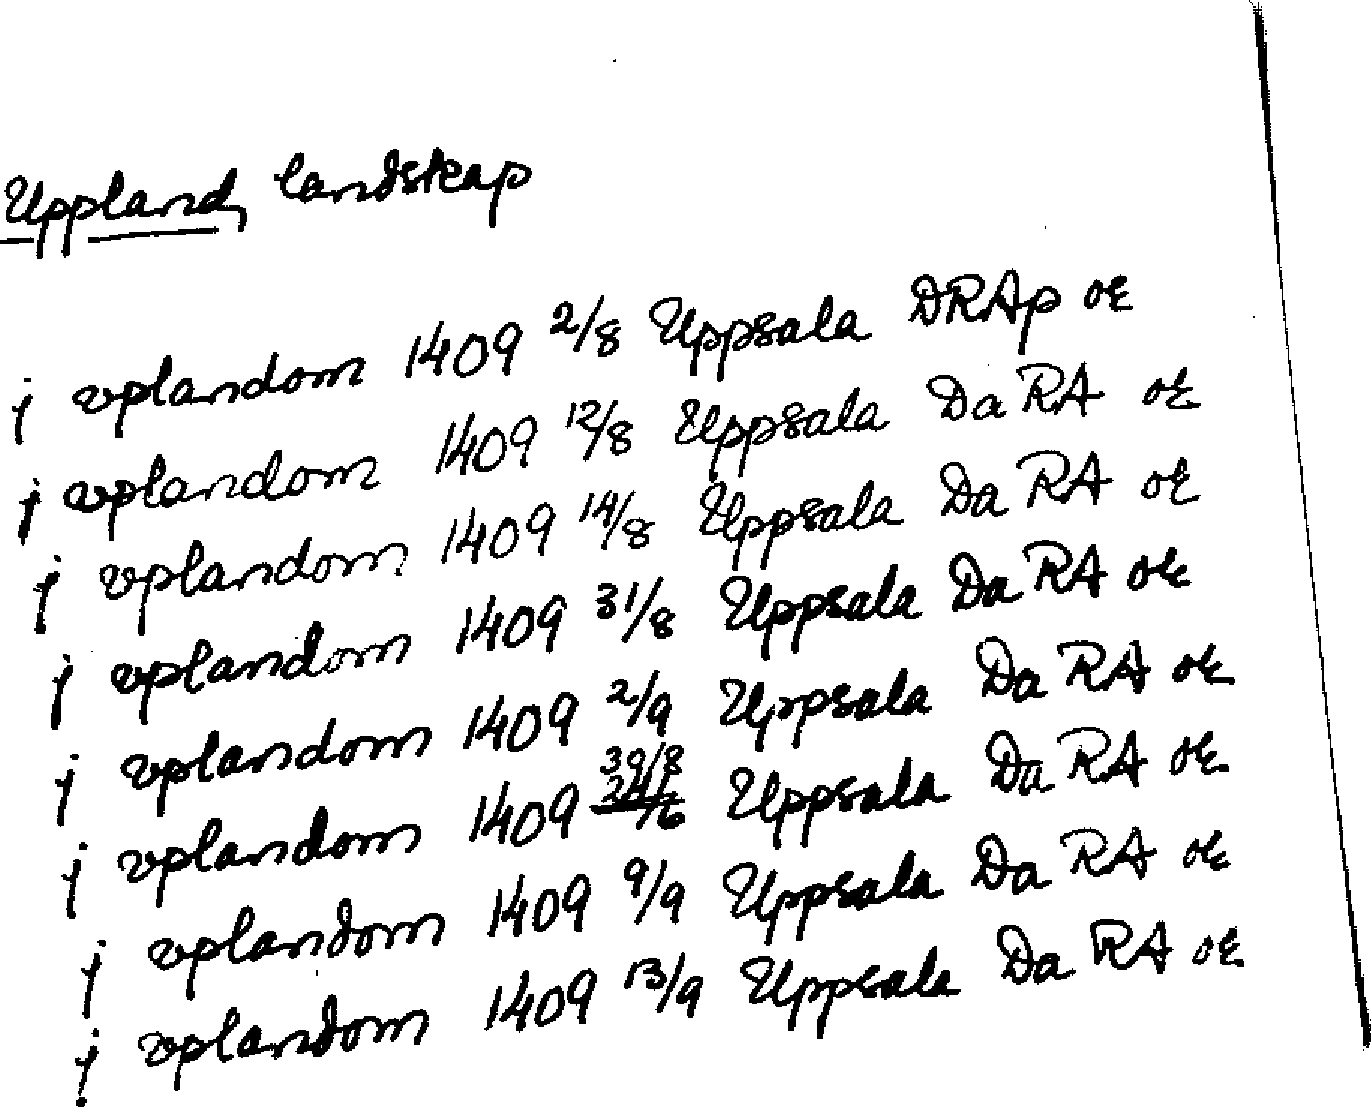 Uppland, landskap
j vplandom 1409 2/8 Uppsala DRAp oE
j vplandom 1409 12/8 Uppsala Da RA oE
j vplandom 1409 14/8 Uppsala Da RA oE
j vplandom 1409 31/8 Uppsala Da RA oE
j vplandom 1409 2/9 Uppsala Da RA oE
j vplandom 1409 30/8 Uppsala Da RA oE
j vplandom 1409 9/9 Uppsala Da RA oE
j vplandom 1409 13/9 Uppsala Da RA oE